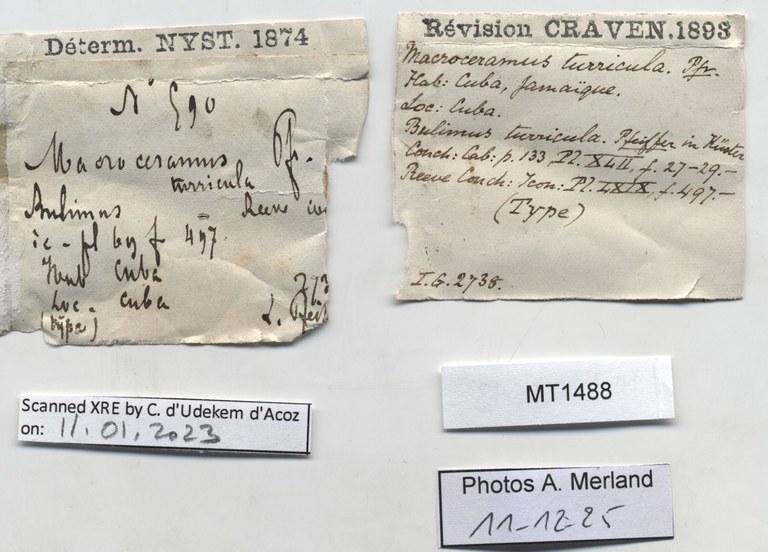 Déterm. NYST. 1874
N° 590
Macroceramus Pfr.
turricula
Bulimus = Reeve
ic - pl 69 f 497
Hab Cuba
Loc - Cuba
(type)
Révision CRAVEN.1893
Macroceramus turricula. Pfr.
Hab: Cuba, Jamaïque.
Loc: Cuba.
Bulimus turricula. Pfeiffer in Küster
Conch: Cab: p. 133, Pl. XLII, f. 27-29.-
Reeve Conch: Icon: Pl. LXIX, f. 497.-
(Type)
I.G. 2738.
Scanned XRE by C. d'Udekem d'Acoz
on: 11.01.2023
MT1488
Photos A. Merland
11-12-25